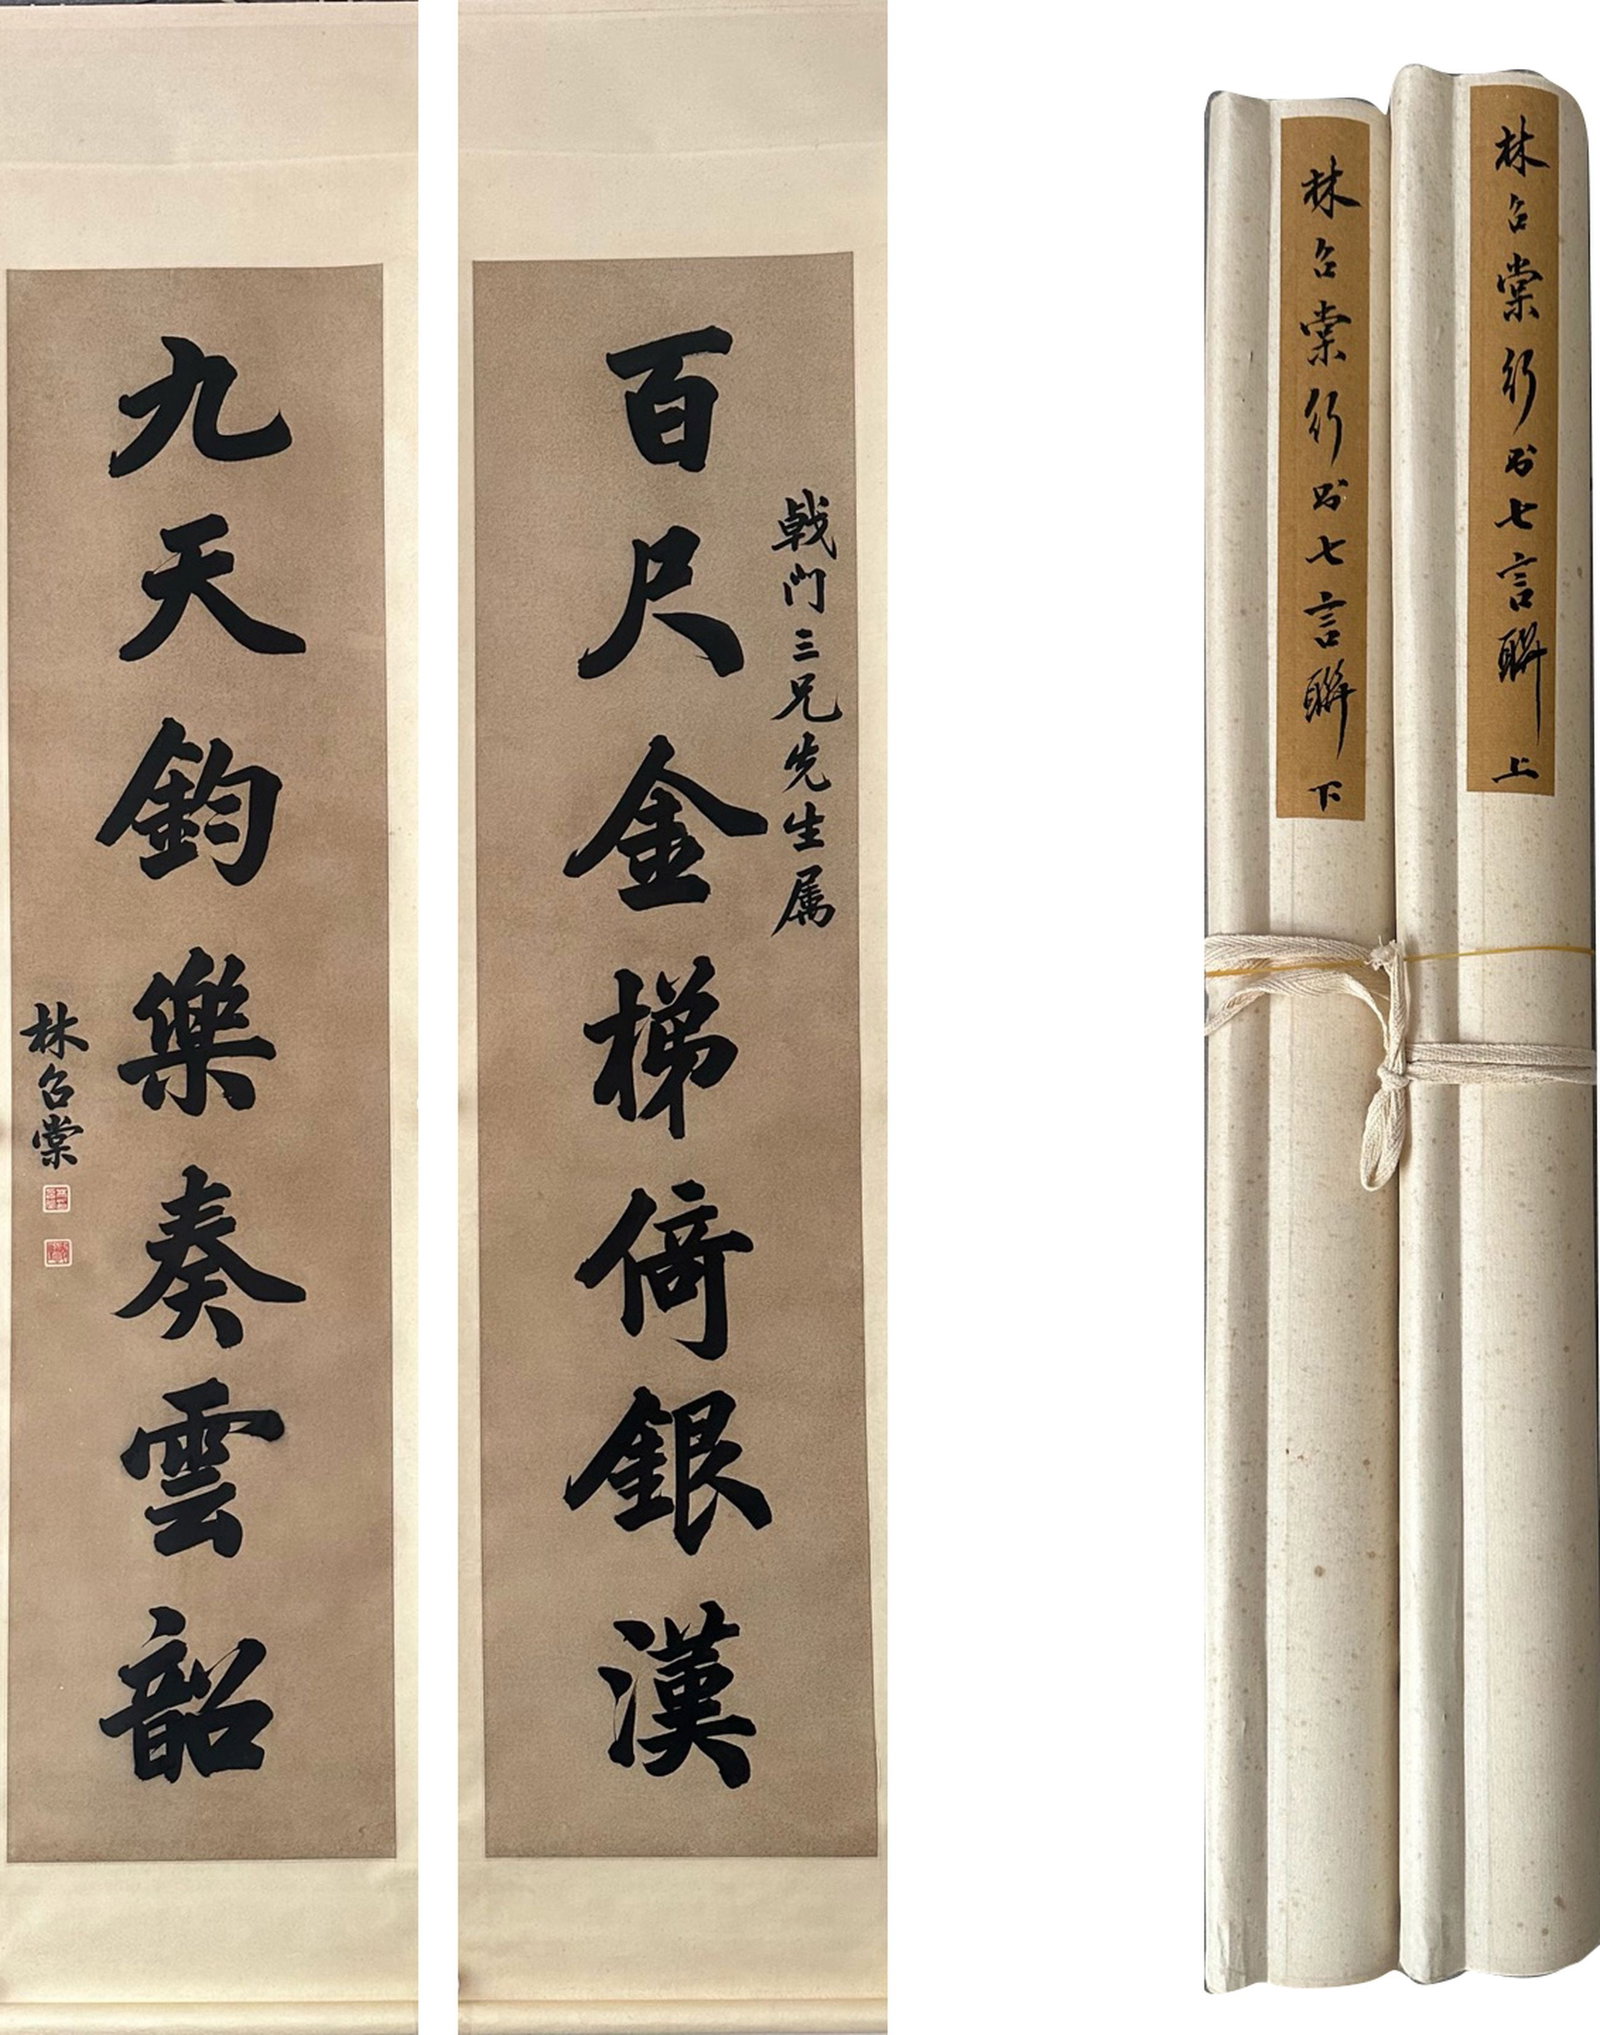 百尺金梯倚銀漢
戟门三兄先生属
九天鈞樂奏雲韶
林召棠
林召棠行书七言联上
林召棠行书七言联下